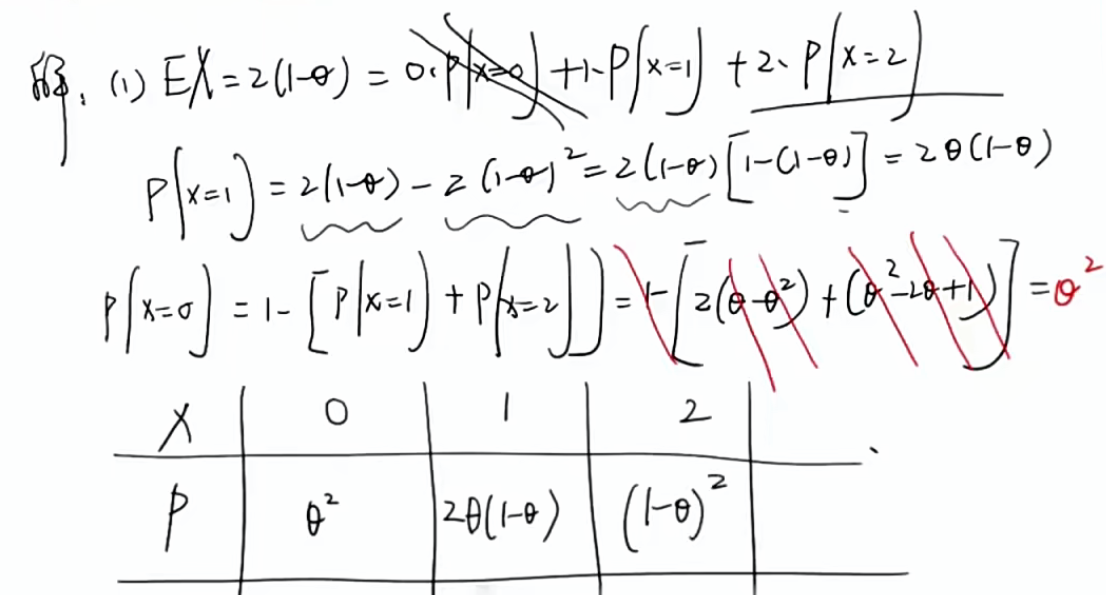 解. (1) EX=2(1-θ) = 0·P(X=0) +1·P(X=1) +2·P(X=2)
P(X=1) = 2(1-θ) - 2(1-θ)² = 2(1-θ)[1-(1-θ)] = 2θ(1-θ)
P(X=0) = 1- [P(X=1) + P(X=2)] = 1- [2(θ-θ²) + (θ²-2θ+1)] = θ²
X 0 1 2
P θ² 2θ(1-θ) (1-θ)²